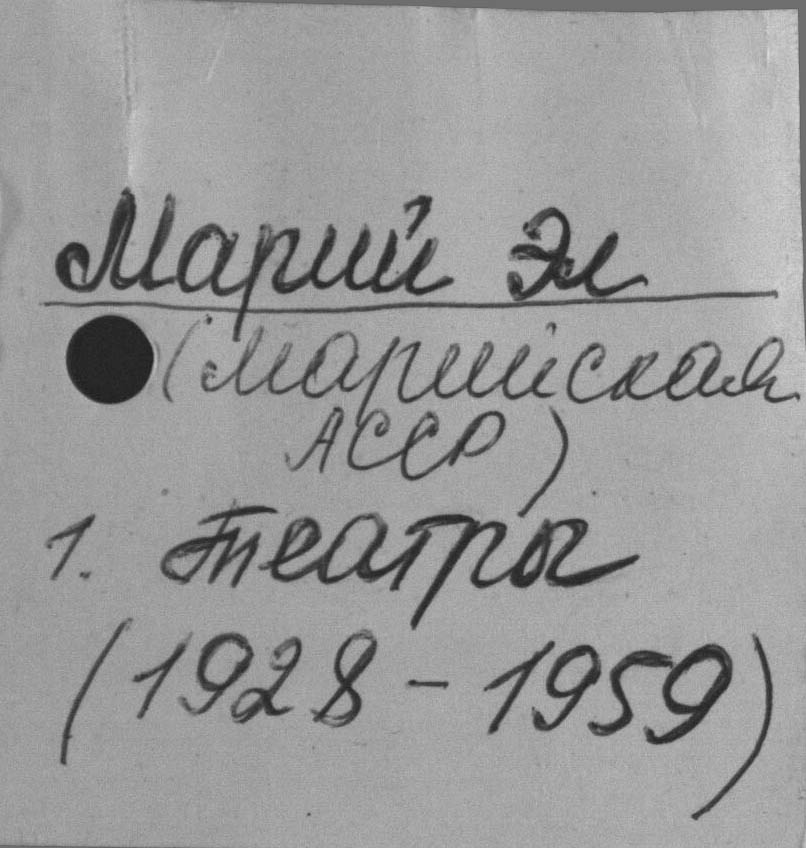 Марий Эл
(Марийская
АССР)
1. Театры
(1928 - 1959)